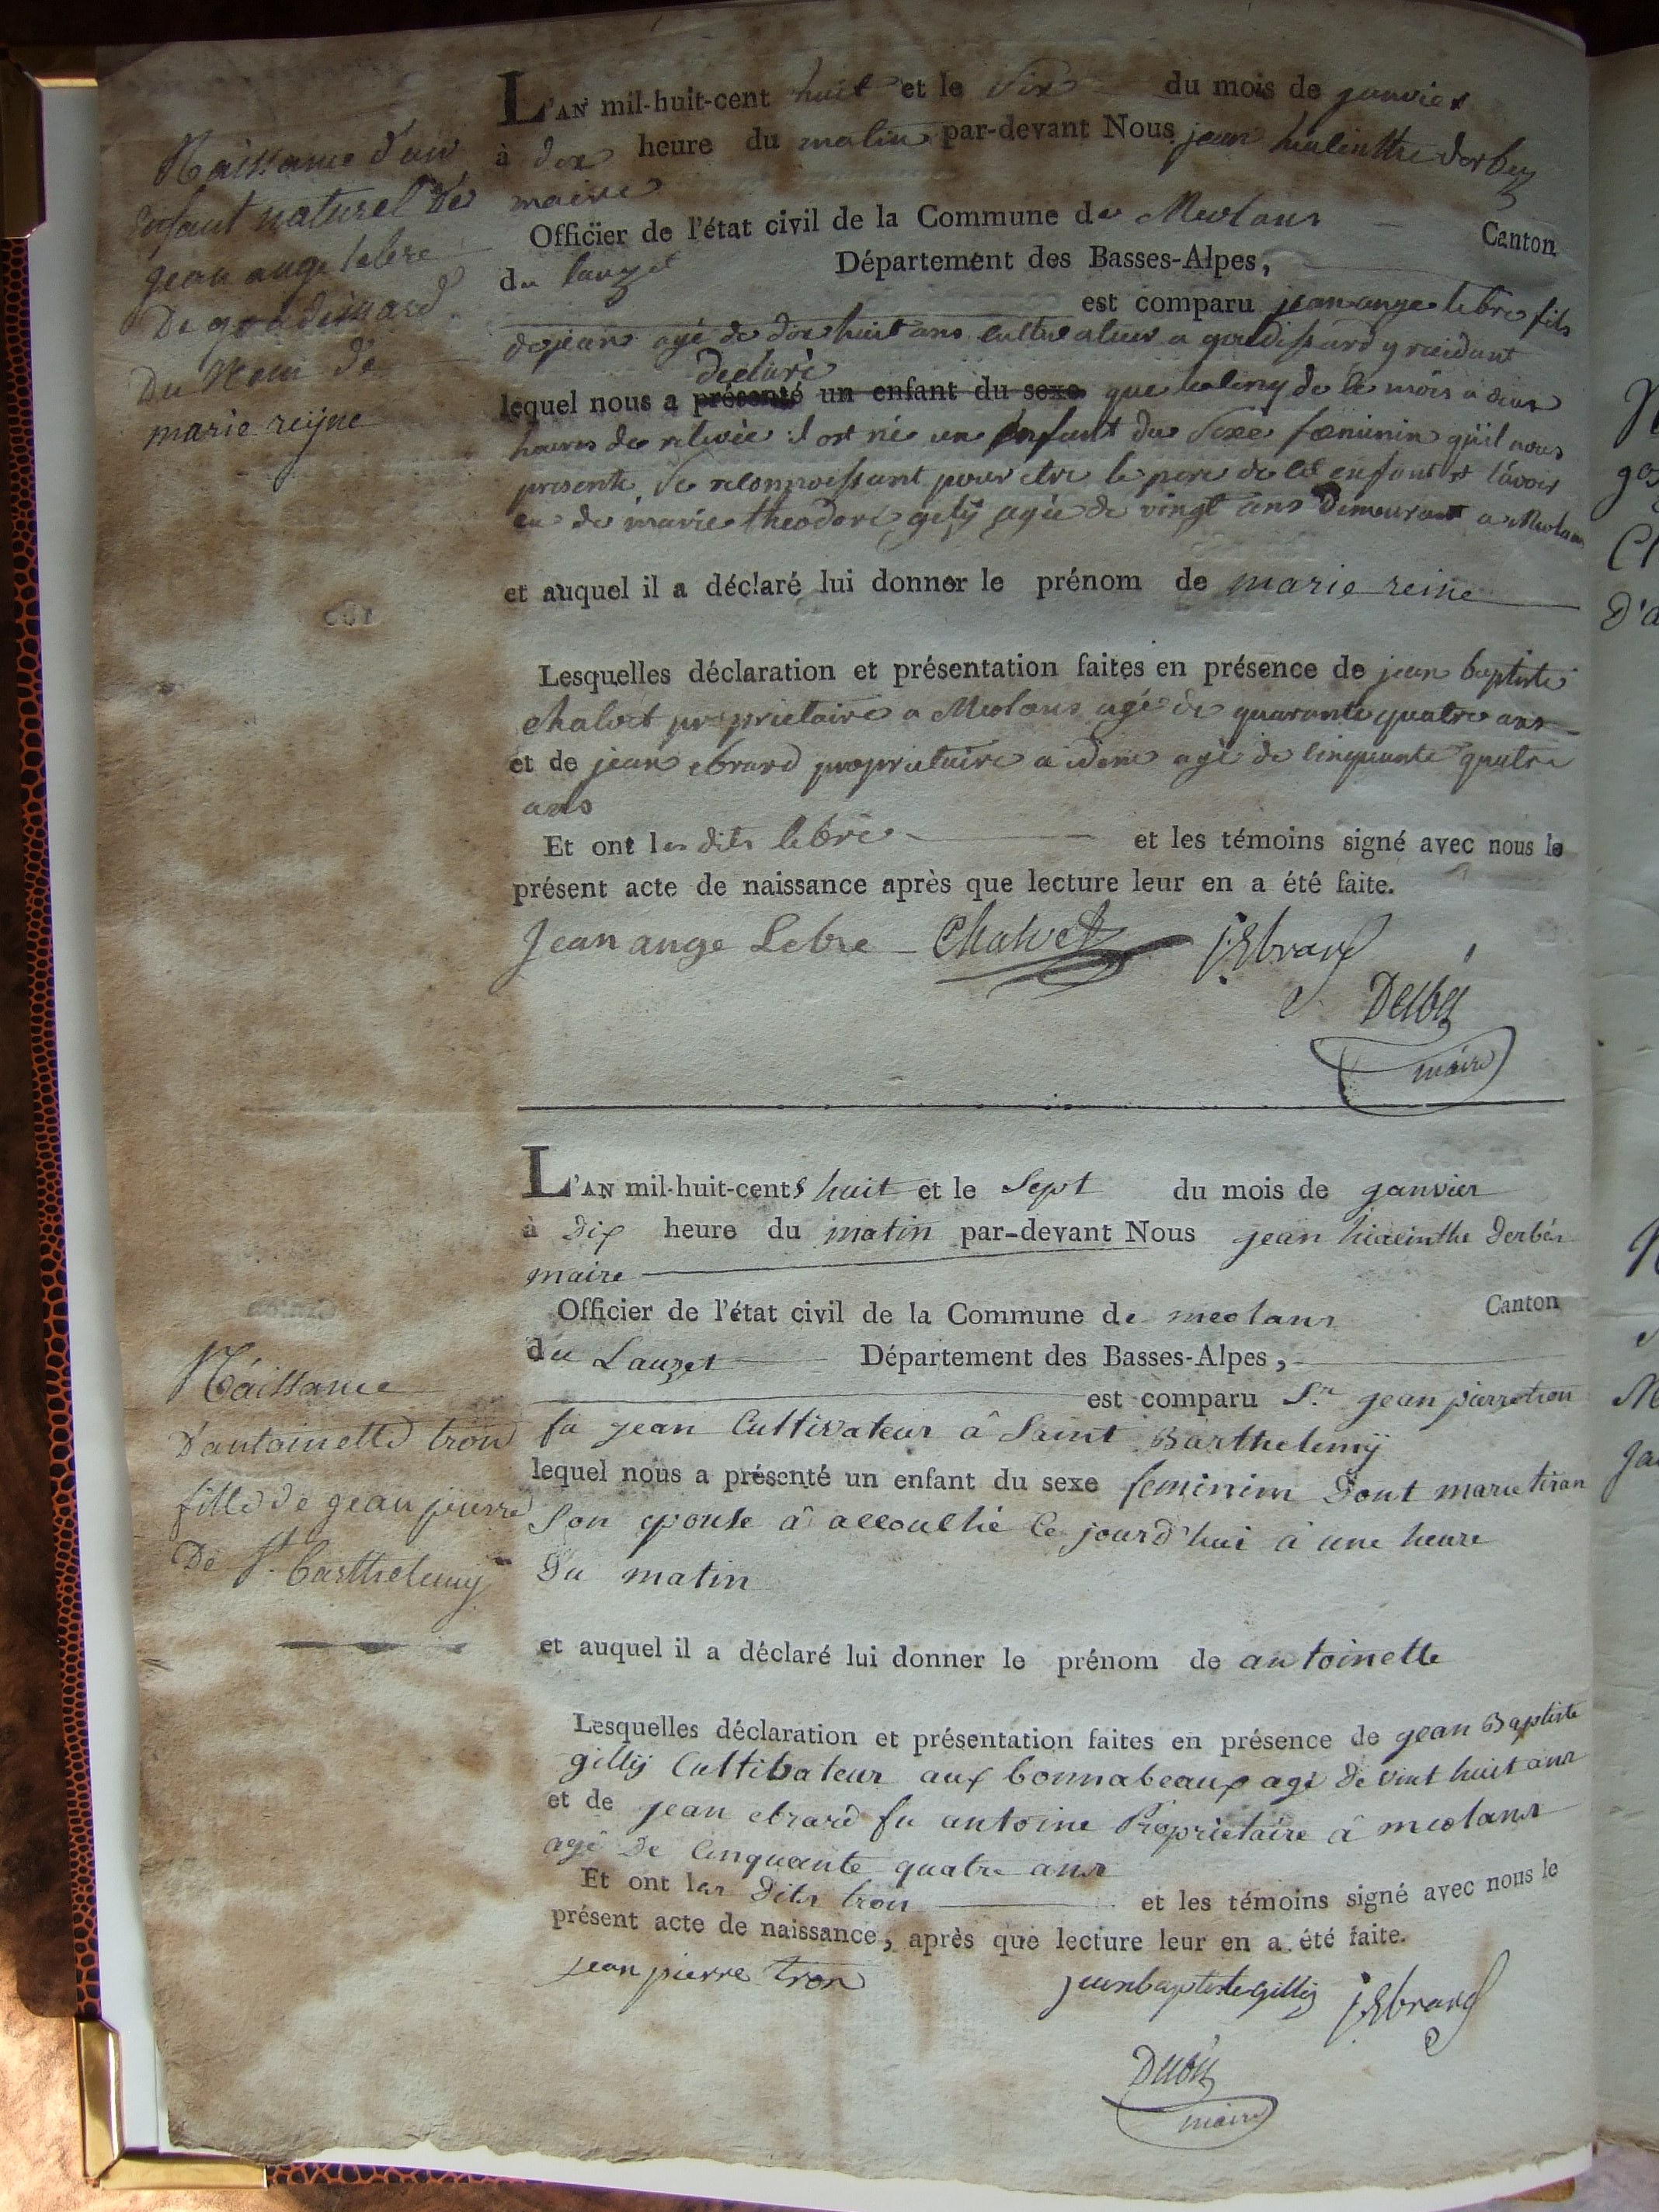 Naissance d'un
enfant naturel de
jean ange lebre
De gaudissard
Du Nom de
marie reyne
L'AN mil-huit-cent huit et le six du mois de janvier
à dix heure du matin par-devant Nous jean hiacinthe derbez
maire
Officier de l'état civil de la Commune de Meolans Canton
du lauzet Département des Basses-Alpes,
est comparu jean ange lebre fils
de jean agé de dix huit ans cultivateur a gaudissard y residant
declaré
lequel nous a présenté un enfant du sexe que le cinq de ce mois a deux
heures de relevée il est né un enfant du sexe fœminin qu'il nous
presente, se reconnoissant pour etre le pere de cet enfant et l'avoir
eu de marie theodore gilly agée de vingt ans demeurant a Meolans
et auquel il a déclaré lui donner le prénom de marie reine
Lesquelles déclaration et présentation faites en présence de jean baptiste
chalvet proprietaire a Meolans agé de quarante quatre ans
et de jean ebrard proprietaire a idem agé de cinquante quatre
ans
Et ont les dits lebre et les témoins signé avec nous le
présent acte de naissance après que lecture leur en a été faite.
Jean ange Lebre Chalvet j. Ebrard
Derbez
maire
Naissance
d'antoinette tron
fille de jean pierre
De St. barthelemy
L'AN mil-huit-cents huit et le Sept du mois de janvier
à dix heure du matin par-devant Nous jean hiacinthe derbés
maire
Officier de l'état civil de la Commune de meolans Canton
du Lauzet Département des Basses-Alpes,
est comparu Sr. jean pierre tron
fu jean Cultivateur â Saint Barthelemÿ
lequel nous a présenté un enfant du sexe feminim Dont marie tiran
Son epouse â accouché Ce jourd'hui â une heure
Du matin
et auquel il a déclaré lui donner le prénom de antoinette
Lesquelles déclaration et présentation faites en présence de jean Baptiste
gillÿ Cultibateur aux bonnabeaux agé de vint huit ans
et de jean ebrard fu antoine Proprietaire â meolans
agé De Cinquante quatre ans
Et ont les Dits tron et les témoins signé avec nous le
présent acte de naissance, après que lecture leur en a été faite.
jean pierre tron jeanbaptistegilly j. Ebrard
Derbez
maire